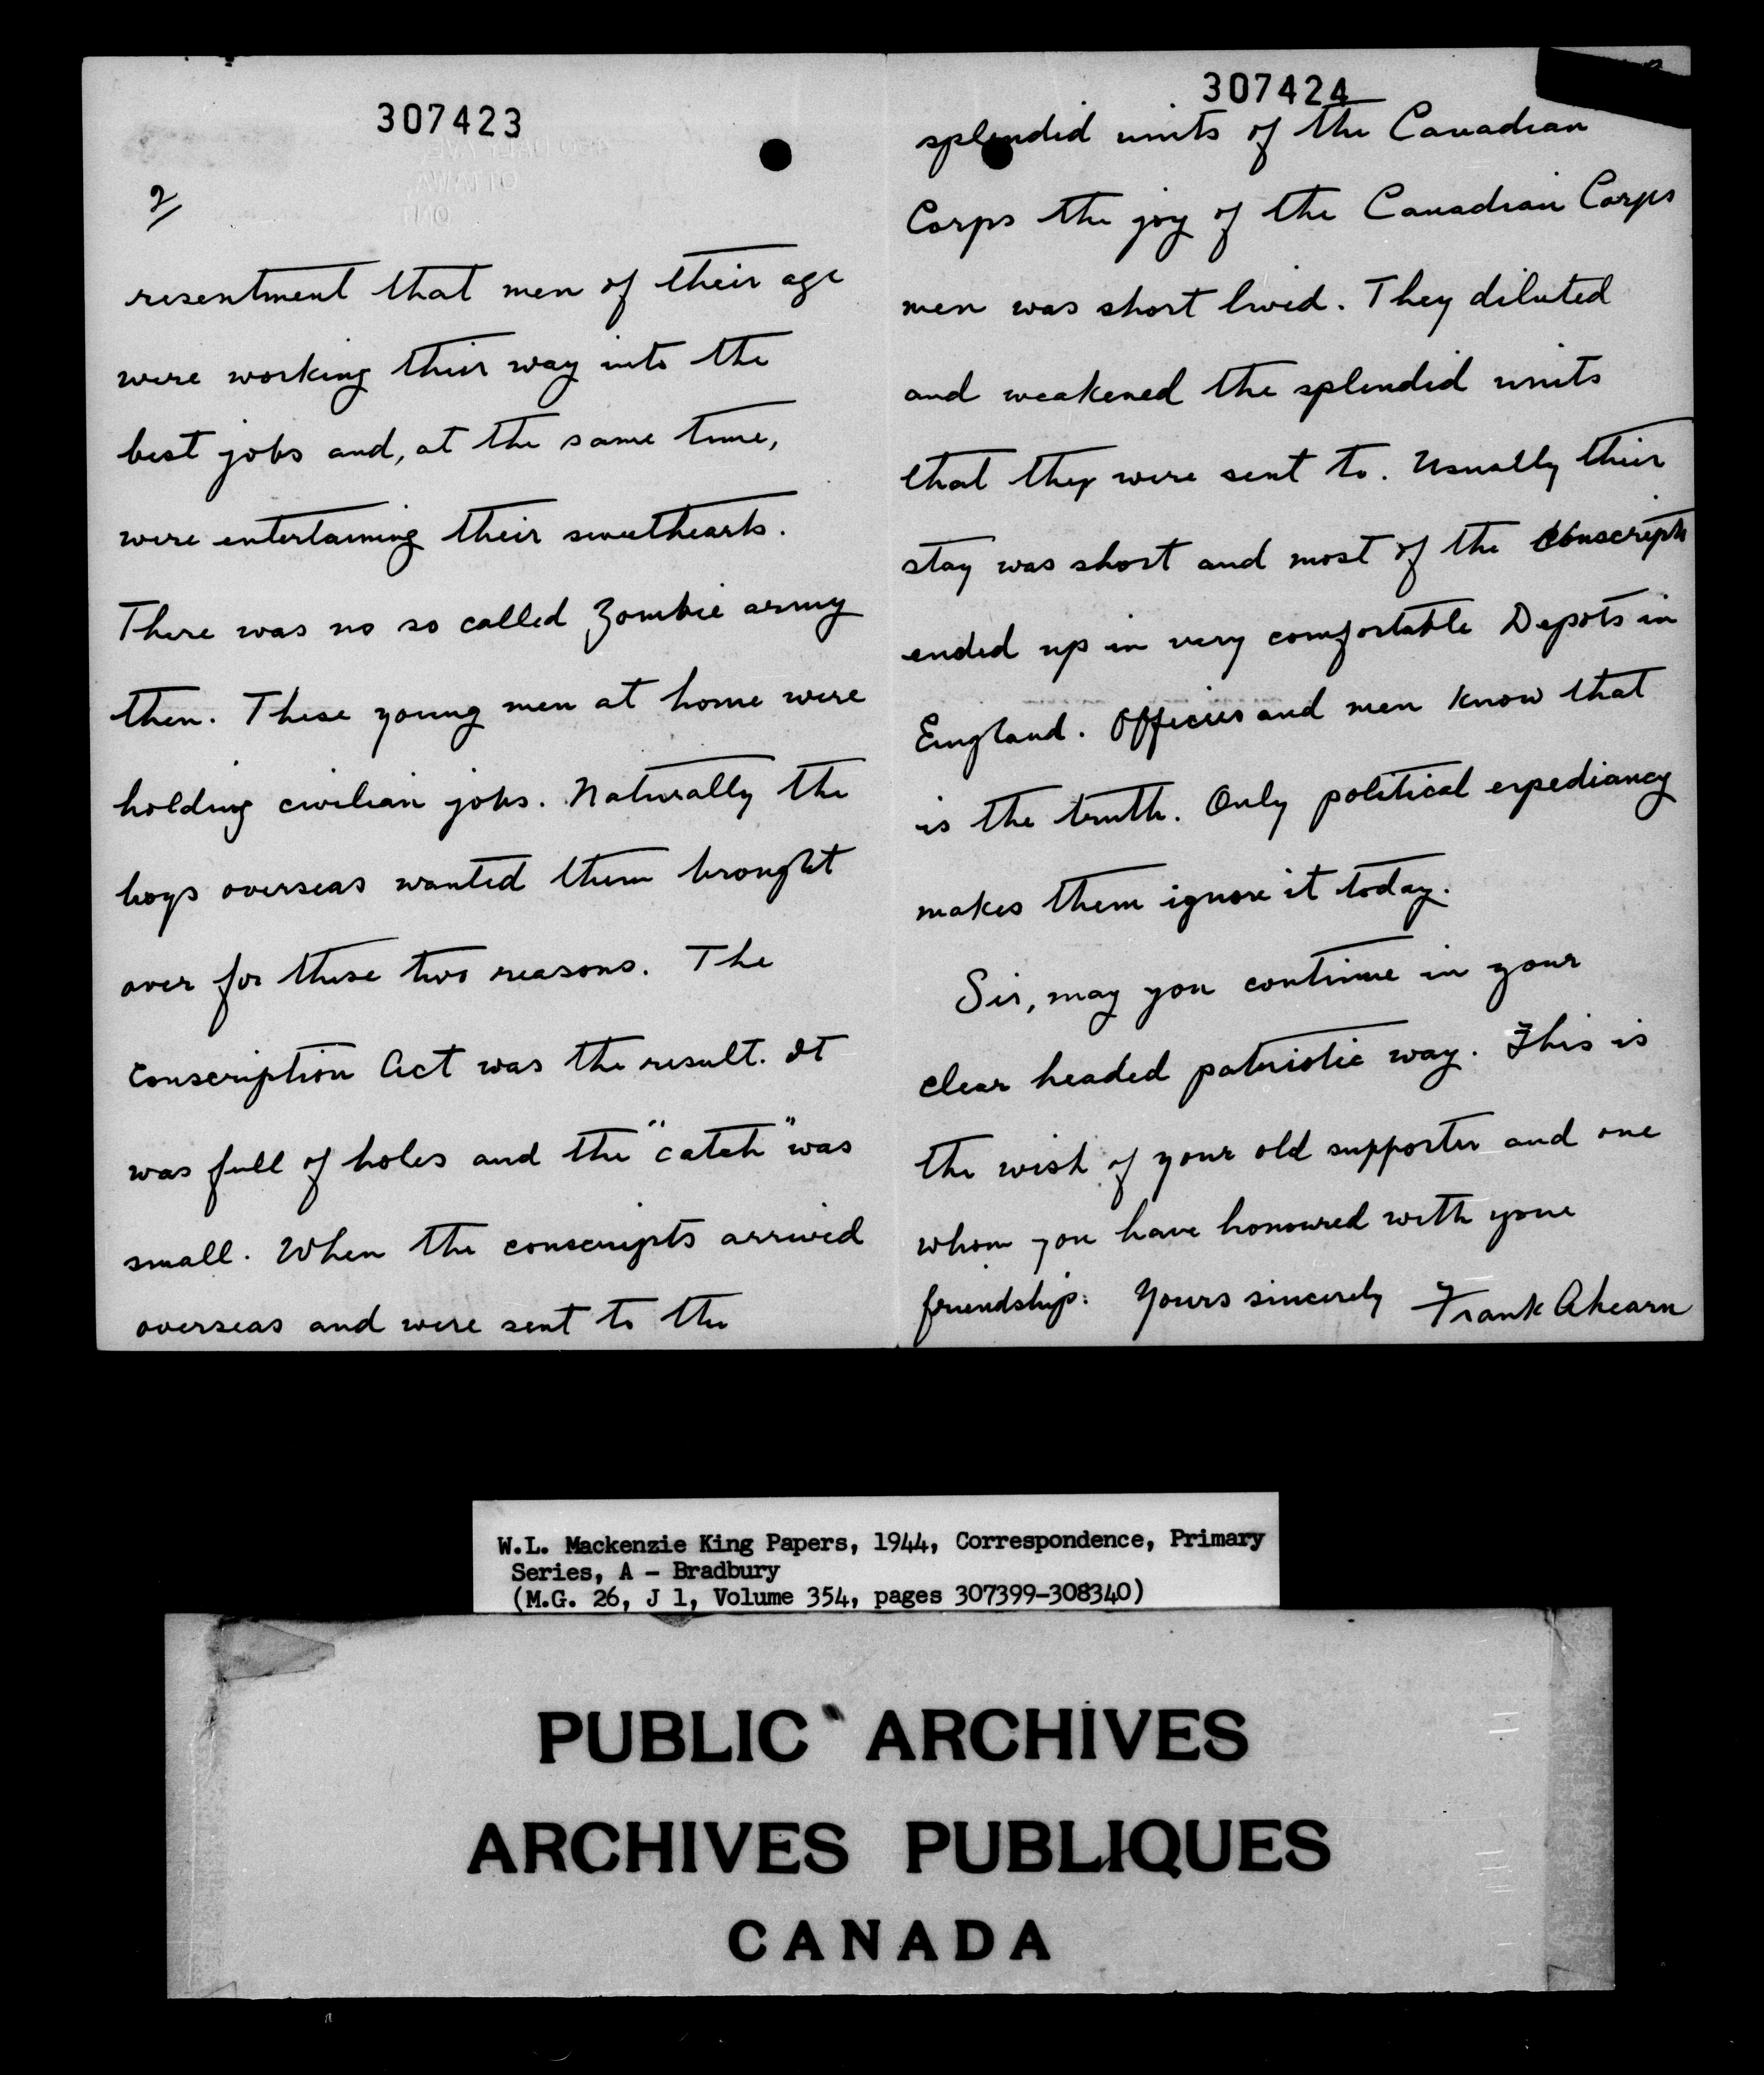 307423
2/
resentment that men of their age
were working their way into the
best jobs and, at the same time,
were entertaining their sweethearts.
There was no so called Zombie army
then. These young men at home were
holding civilian jobs. Naturally the
boys overseas wanted them brought
over for these two reasons. The
Conscription Act was the result. It
was full of holes and the "catch" was
small. When the conscripts arrived
overseas and were sent to the
307424
splendid units of the Canadian
Corps the joy of the Canadian Corps
men was short lived. They diluted
and weakened the splendid units
that they were sent to. Usually their
stay was short and most of the conscripts
ended up in very comfortable Depots in
England. Officers and men know that
is the truth. Only political expediancy
makes them ignore it today.
Sir, may you continue in your
clear headed patriotic way. This is
the wish of your old supporter and one
whom you have honoured with your
friendship. Yours sincerely Frank Ahearn
W.L. Mackenzie King Papers, 1944, Correspondence, Primary
Series, A - Bradbury
(M.G. 26, J 1, Volume 354, pages 307399-308340)
PUBLIC ARCHIVES
ARCHIVES PUBLIQUES
CANADA